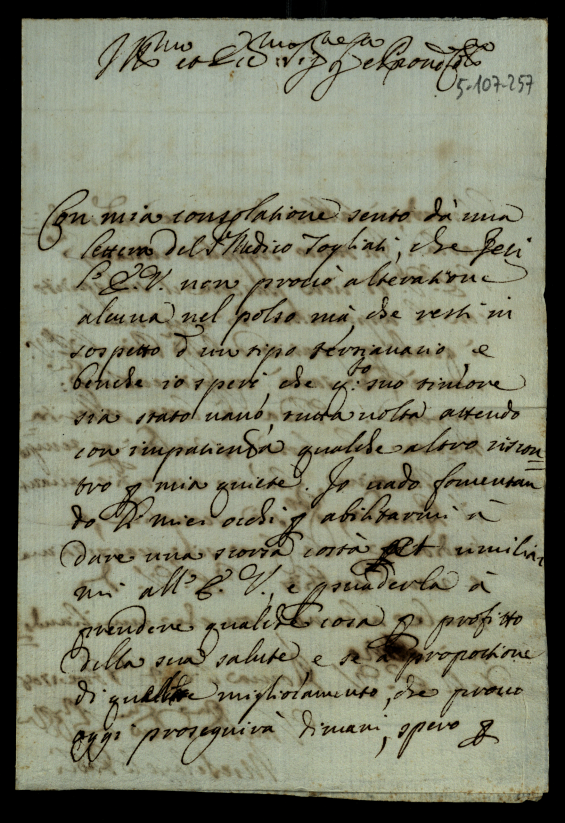 Ill.mo et Ecc.mo Sig.re Sig.r e Pron Col.mo
5-107-257
Con mia consolatione sento dà una
lettera del S.r Medico Togliati, che jeri
l'E. V. non provò alteratione
alcuna nel polso mà, che resti in
sospetto d'un tipo terzianario e
benche io speri, che q.to suo timore
sia stato vano, tutta volta attendo
con impatienza qualche altro riscon=
tro p mia quiete. Io vado fomentan
do li miei occhi p abilitarmi à
dare una scorsa costà et umiliar
mi all'E. V., e psuaderla à
prendere qualche cosa p profitto
della sua salute e se à proportione
di qualche miglioramento, che provo
oggi proseguirà dimani, spero p